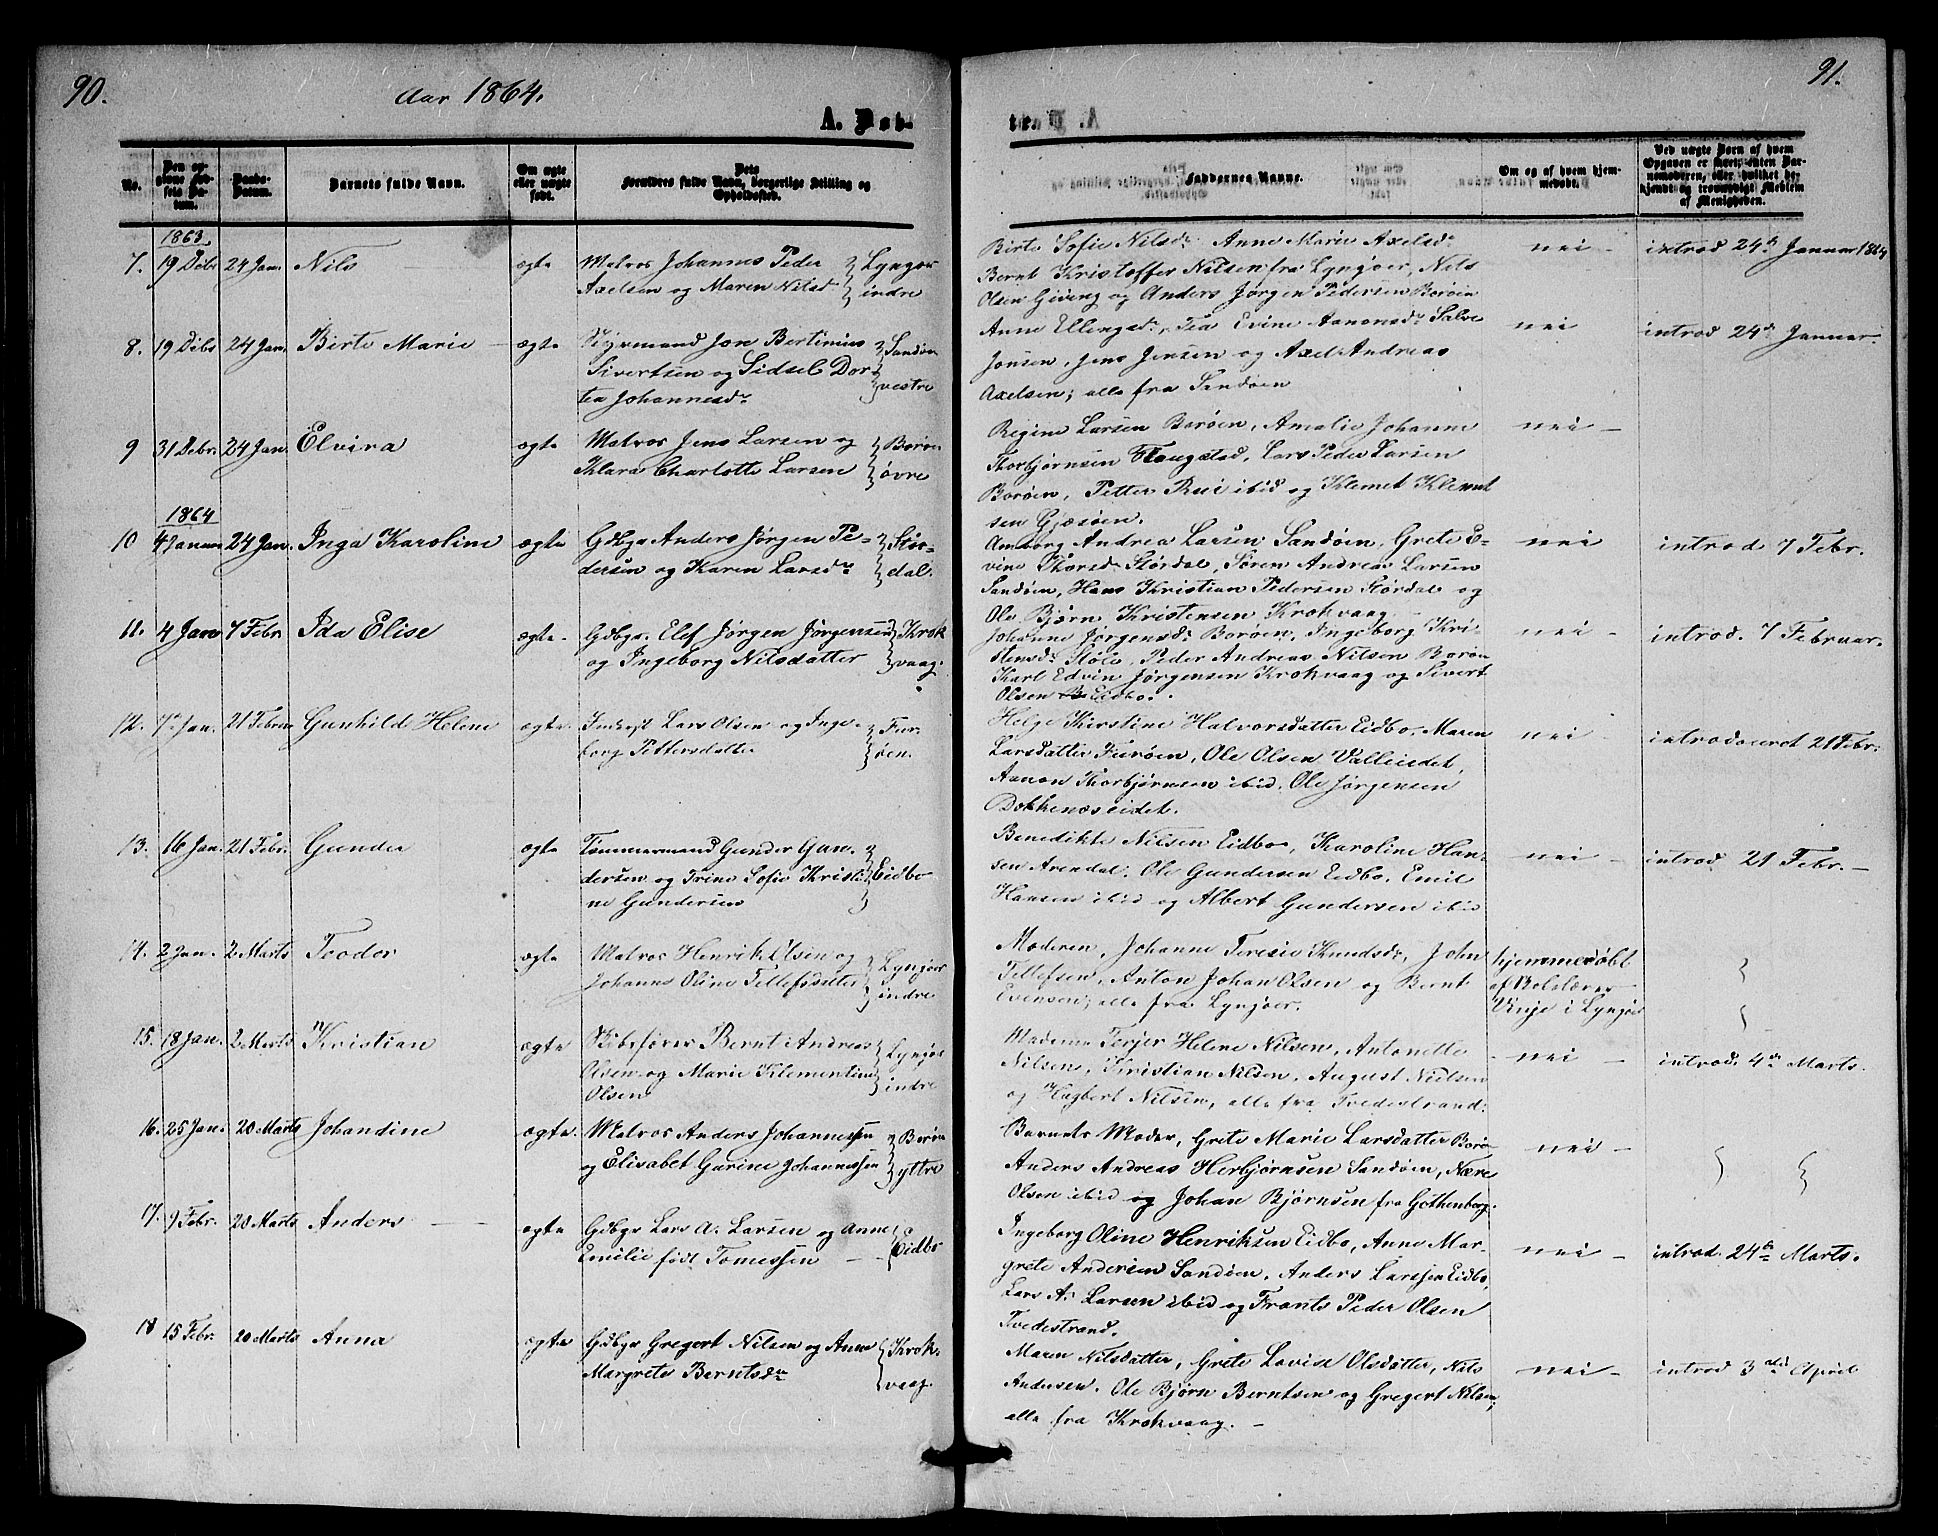 90.
Aar 1864.
A. Døb-
No.
Den opgivne Fødsels Datum.
Daabs-Datum.
Barnets fulde Navn.
Om ægte eller uægte født.
Dets Forældres fulde Navn, borgerlige Stilling og Opholdssted.
1863.
7. 19 Debr 24 Jan. Nils ægte Matros Johannes Peder Lyngør
Axelsen og Maren Nilsd indre
8. 19 Debr 24 Jan. Birte Marie ægte Styrmand Jon Bertinius Sandøen
Sivertsen og Sidsel Dor- vestre
tea Johannesdr
9 31 Debr. 24 Jan. Elvira ægte Matros Jens Larsen og Borøen
Klara Charlotte Larsen øvre
1864
10 4 Januar 24 Jan. Inga Karoline ægte Gdbgr Anders Jørgen Pe- Stør-
dersen og Karen Larsdr dal.
11. 4 Jan 7 Febr. Ida Elise ægte Gdbgr. Elef Jørgen Jørgensen Krok
og Ingeborg Nilsdatter vaag.
12. 7 Jan. 21 Februar Gunhild Helene ægte Inderst Lars Olsen og Inge- Fur-
borg Pettersdatter øen.
13. 16 Jan. 21 Febr. Gunder ægte Tømmermand Gunder Gun-
dersen og Trine Sofie Kristi- Eidbo
ne Gundersen
14. 2 Jan. 2 Marts Teodor ægte Matros Henrik Olsen og Lyngør
Johanne Oline Tellefsdatter indre
15. 18 Jan. 2 Marts Kristian ægte Skibsfører Bernt Andreas Lyngør
Olsen og Marie Klementine indre
Olsen
16. 25 Jan. 20 Marts Johandine ægte. Matros Anders Johannessen Borøen
og Elisabet Gurine Johannessen yttre
17. 9 Febr. 20 Marts Anders ægte Gdbgr Lars A. Larsen og Anne Eidbo
Emilie født Tomessen
18 15 Febr. 20 Marts Anna ægte Gdbgr Gregert Nilsen og Anne Krok-
Margrete Berntsdr vaag.
91.
te.
Faddernes Navne.
Om og af hvem hjemmedøbt.
Ved uægte Børn af hvem Opgaven er skeet, enten Barnemoderen, eller hvilket bekjendt og troværdigt Medlem af Menigheden.
Birte Sofie Nilsdr Anne Marie Axelsdr nei introd 24de Januar 1864
Bernt Kristoffer Nilsen fra Lyngøer, Nils
Olsen Giving og Anders Jørgen Pedersen Borøen
Anne Ellengsdr, Tea Evine Aanonsdr Salve nei introd 24de Januar.
Jonsen, Jens Jensen og Axel Andreas
Axelsen; alle fra Sandøen
Regine Larsen Borøen, Amalie Johanne nei
Thorbjørnsen Flougstad, Lars Peder Larsen
Borøen, Petter Rui ibid og Klemet Klemet
sen Gjæsøen.
Amborg Andrea Larsen Sandøen, Grete E- nei introd 7 Febr.
vine Thorsdr Størdal, Søren Andreas Larsen
Sandøen, Hans Kristian Pedersen Størdal og
Ole Bjørn Kristensen Krokvaag
Johanne Jørgensdr Borøen, Ingeborg Kri- nei introd. 7 Februar.
stensdr Støle, Peder Andreas Nilsen Borøen
Karl Edvin Jørgensen Krokvaag og Sivert
Olsen Eidbo.
Helge Kirstine Halvorsdatter Eidbo, Maren nei introduceret 21 Febr.
Larsdatter Furøen, Ole Olsen Valleeidet,
Aanon Thorbjørnsen ibid. Ole Jørgensen
Dokkenæseidet.
Benedikte Nilsen Eidbo, Karoline Han- nei introd 21 Febr.
sen Arendal. Ole Gundersen Eidbo, Emil
Hansen ibid og Albert Gundersen ibid
Moderen, Johanne Teresie Knudsdr, John hjemmedøbt
Tellefsen, Anton Johan Olsen og Bernt af Bolslærer
Evensen; alle fra Lyngøer. Vinje i Lyngør
Madame Terjer Helene Nilsen, Antonette nei introd. 4de Marts.
Nilsen, Kristian Nilsen, August Nielsen
og Hagbert Nilsen, alle fra Tvedestrand.
Barnets Moder, Grete Marie Larsdatter Borø nei
Anders Andreas Herbjørnsen Sandøen, Nære
Olsen ibid og Johan Bjørnsen fra Gøthenborg.
Ingeborg Oline Henriksen Eidbo, Anne Mar- nei introd. 24de Marts.
grete Andersen Sandøen, Anders Larssen Eidbo,
Lars A. Larsen ibid og Frants Peder Olsen
Tvedestrand.
Maren Nilsdatter, Grete Lovise Olsdatter, Nils nei introd 3die April
Andersen. Ole Bjørn Berntsen og Gregert Nilsen,
alle fra Krokvaag.